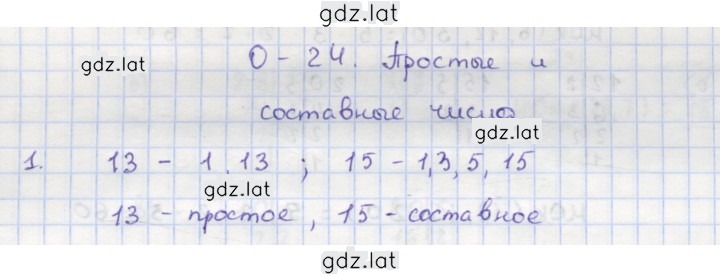 gdz.lat
О-24. Простые и
gdz.lat
составные числа
gdz.lat
1. 13 - 1.13 ; 15 - 1,3,5,15
gdz.lat
13 - простое, 15 - составное
gdz.lat